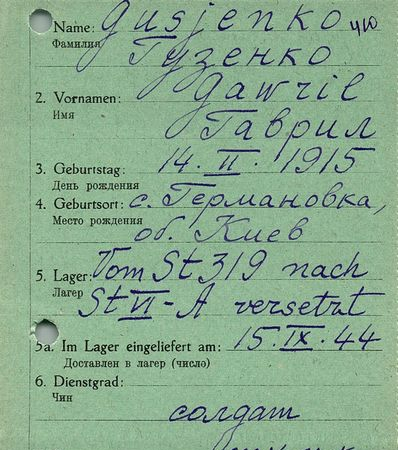 Name: Gusjenko
Фамилия Гузенко
2. Vornamen: Gawril
Имя Гаврил
3. Geburtstag: 14. II. 1915
День рождения
4. Geburtsort: с. Германовка,
Место рождения об. Киев
5. Lager: Vom St 319 nach
Лагерь St VI-A versetzt
5a. Im Lager eingeliefert am: 15. IX. 44
Доставлен в лагерь (число)
6. Dienstgrad:
Чин
солдат